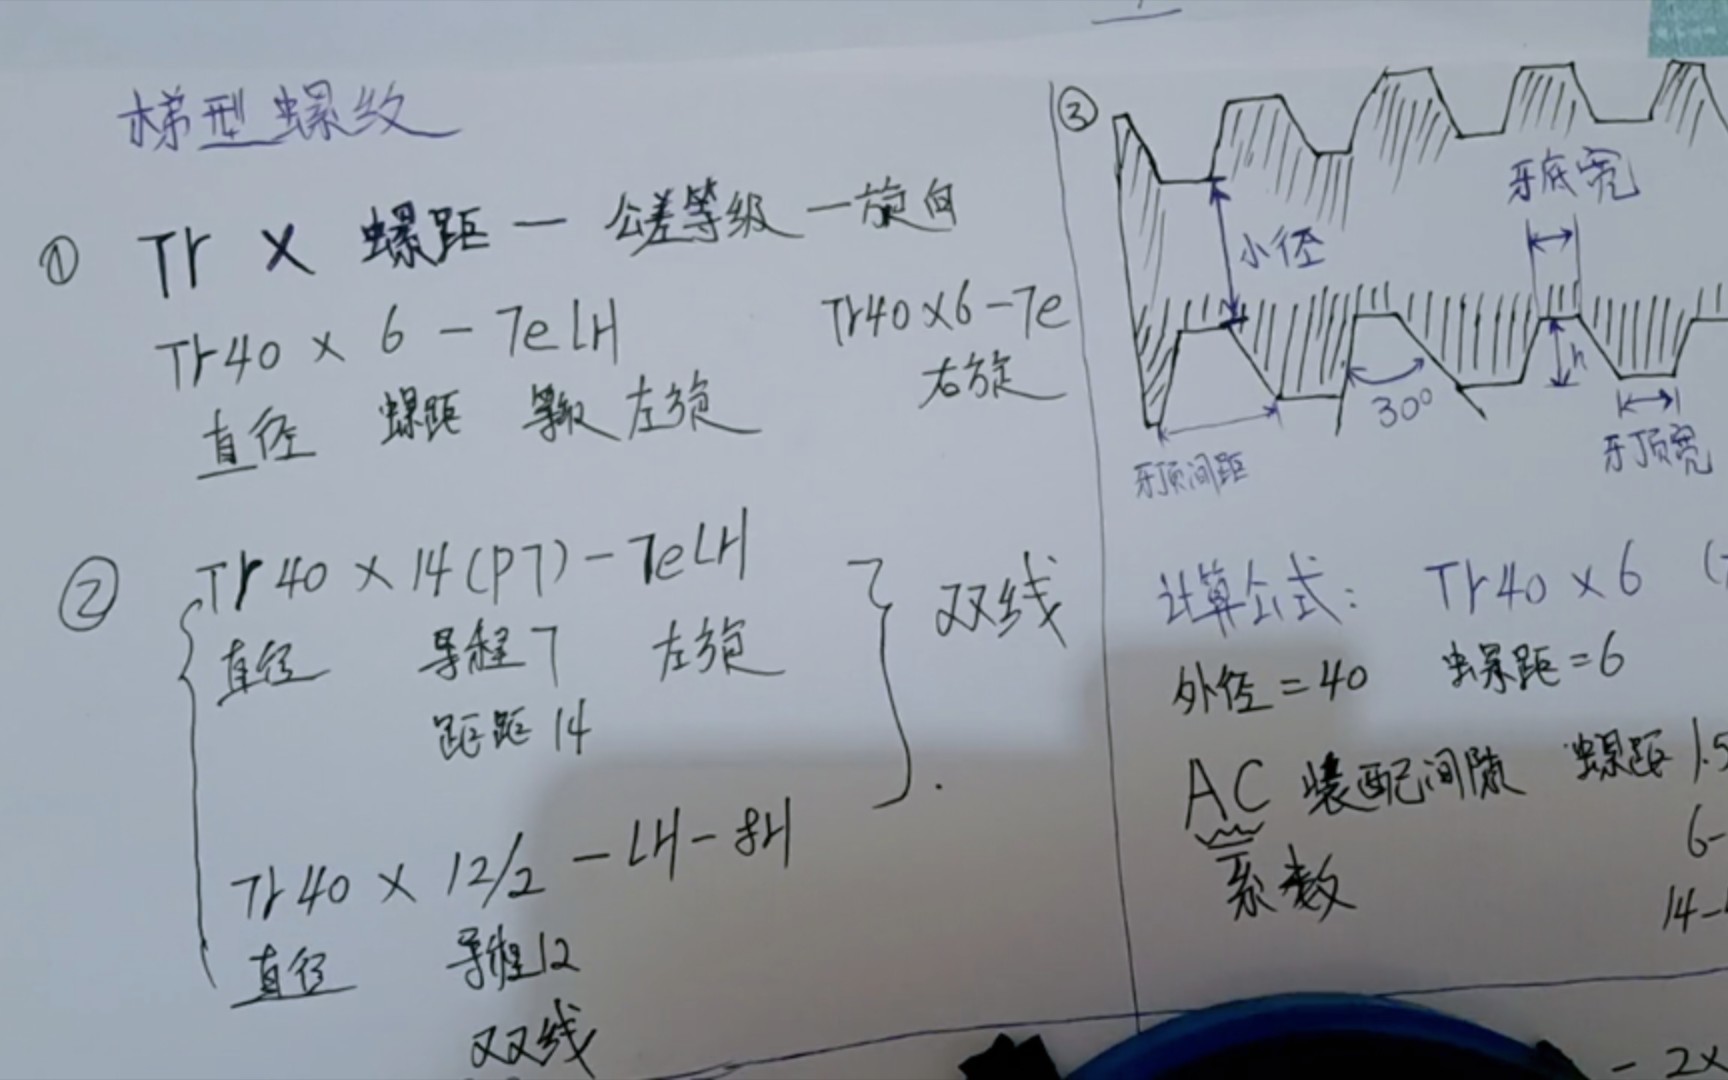 梯型螺纹
① Tr × 螺距 — 公差等级 — 旋向
Tr40 × 6 - 7e LH
直径 螺距 等级 左旋
Tr40 × 6 - 7e
右旋
② Tr 40 × 14 (P7) - 7e LH
直径 导程 7 左旋
距距 14
双线
Tr 40 × 12/2 - LH - 8H
直径 导程12
双线
③
牙底宽
小径
h
30°
牙顶宽
牙顶间距
计算公式: Tr40 × 6 (
外径 = 40 螺距 = 6
AC 装配间隙 螺距 1.5
系数
6-
14-
- 2×